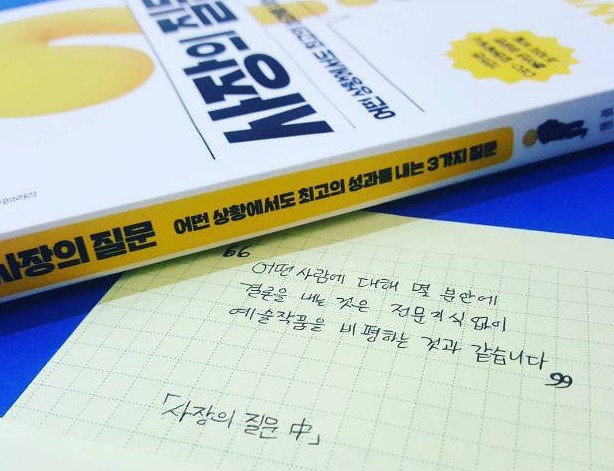 사장의 질문
어떤 상황에서도
사장의 질문 어떤 상황에서도 최고의 성과를 내는 3가지 질문
❝
어떤사람에 대해 몇 분안에
결론을 내는 것은 전문지식없이
예술작품을 비평하는 것과 같습니다
❞
「사장의 질문 中」